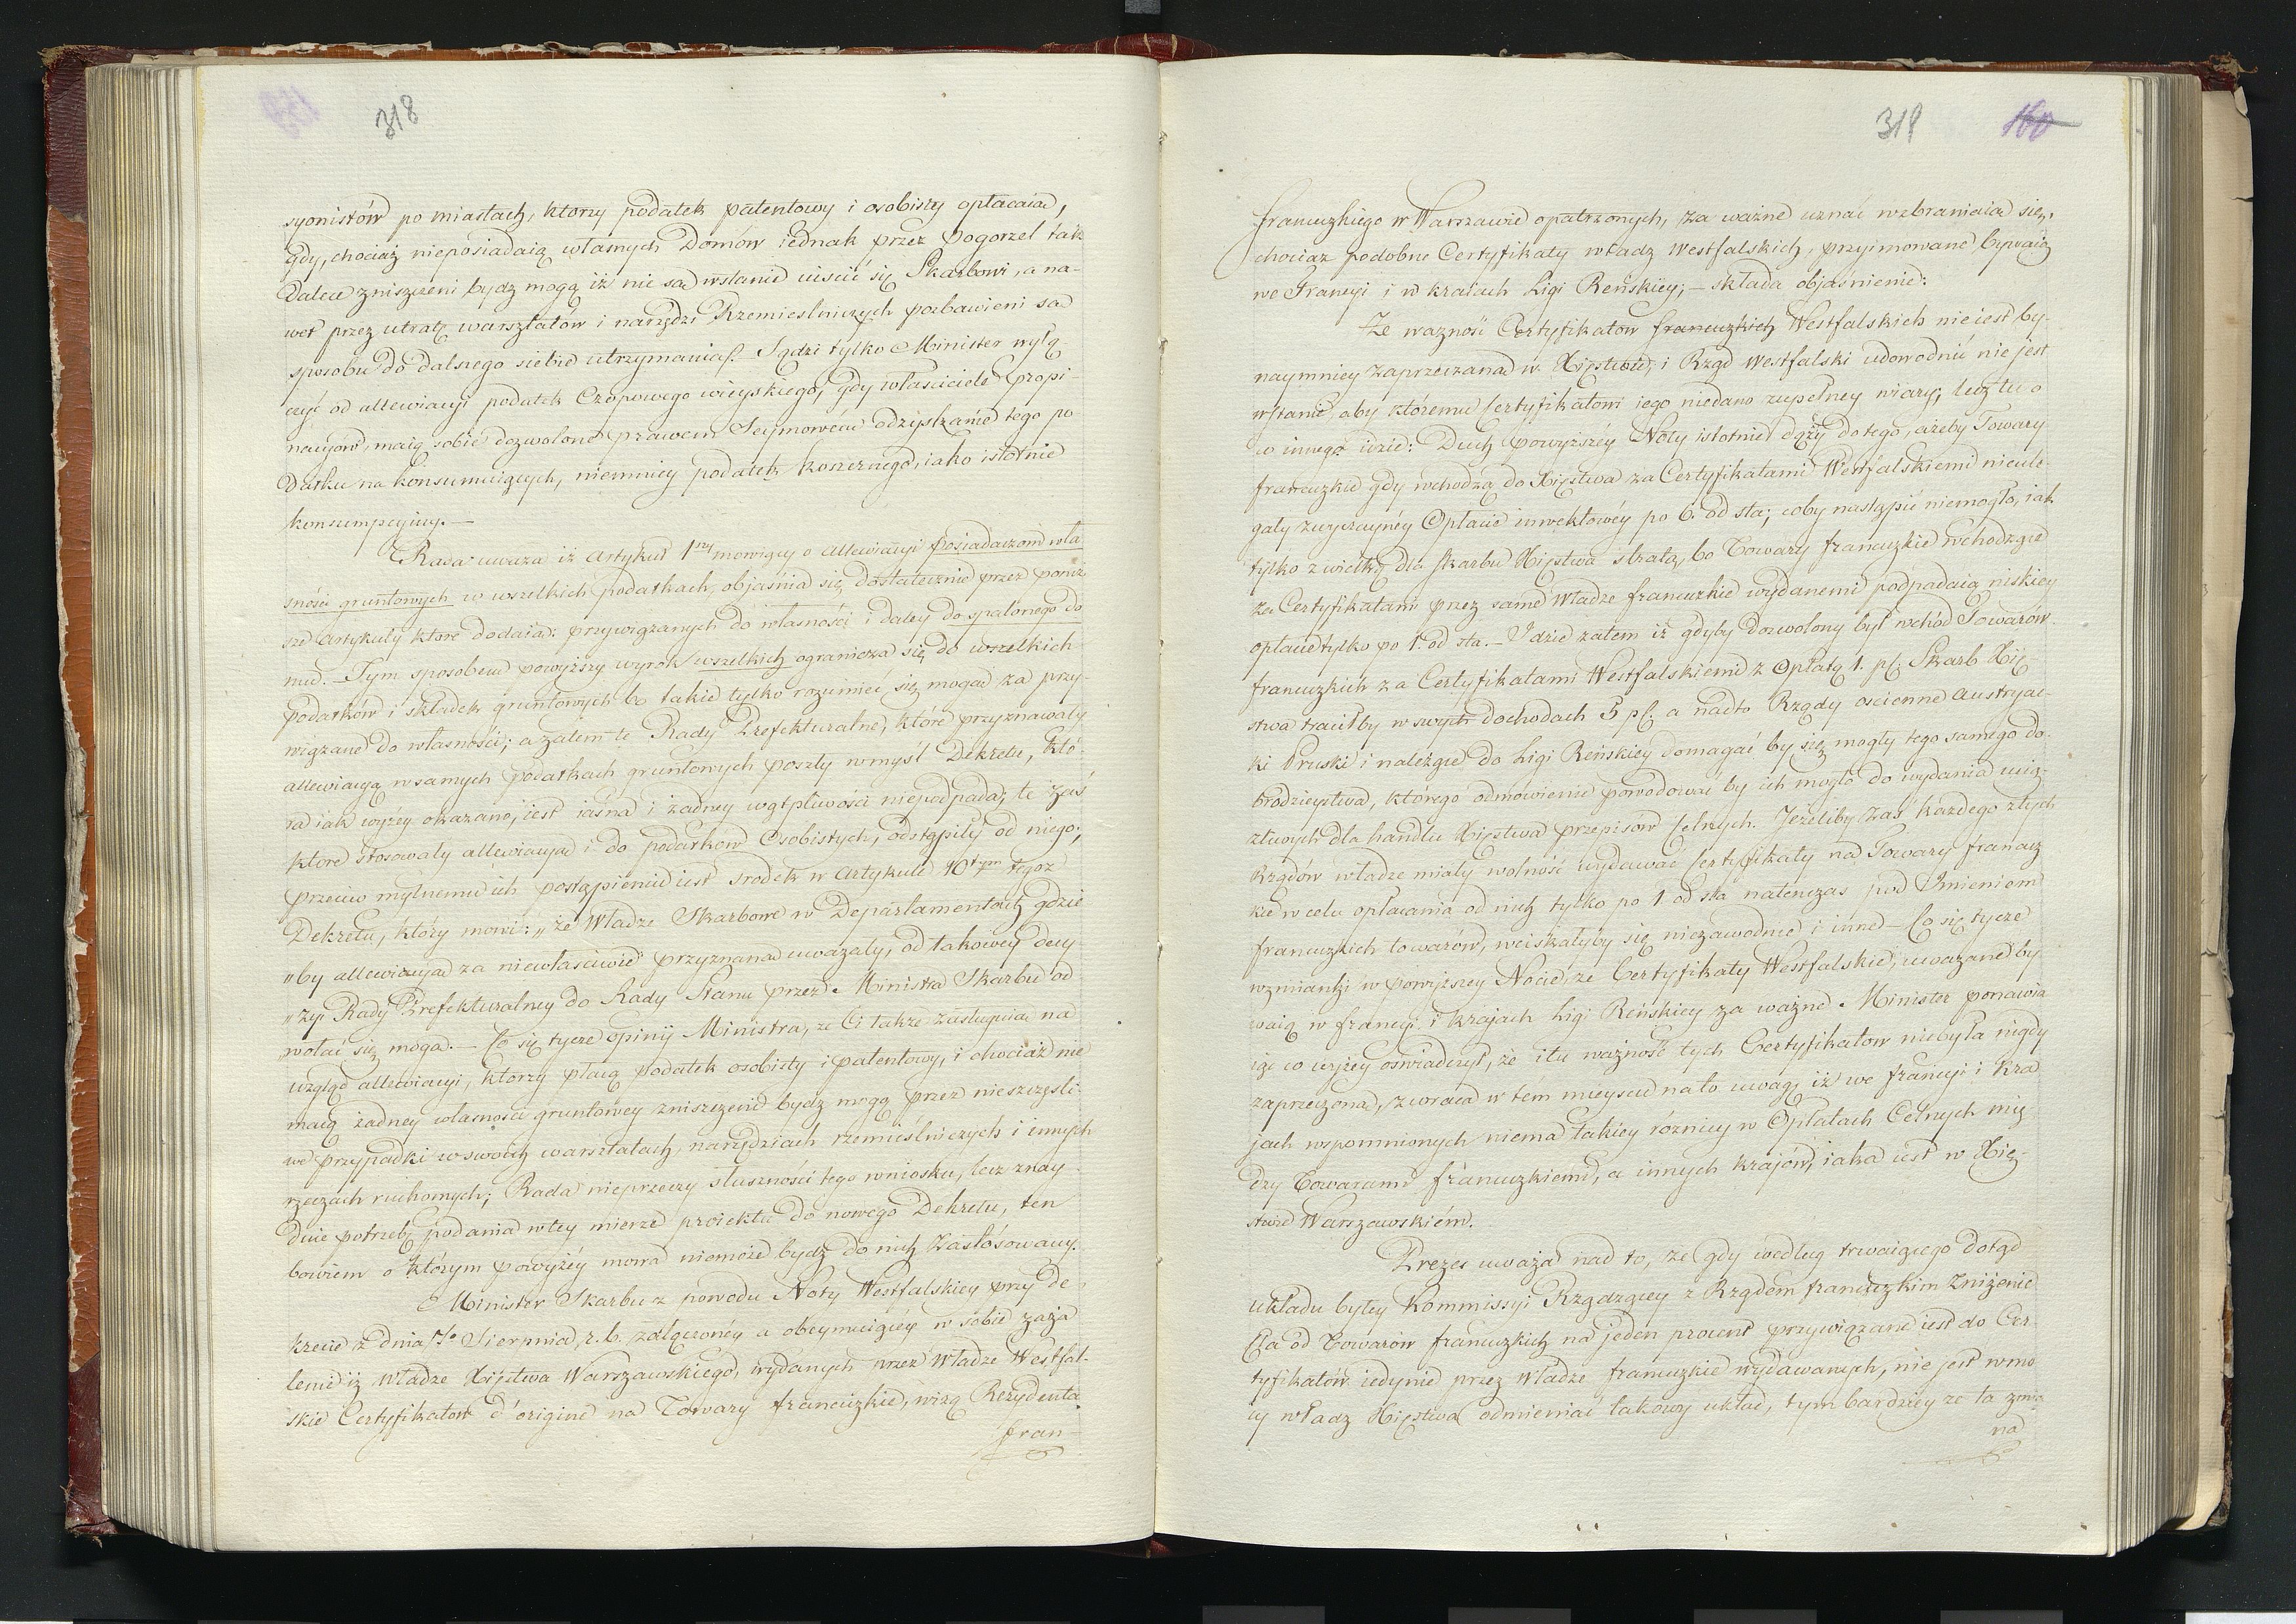 318
syonistów po miastach, ktorzy podatek patentowy i osobisty opłacaią,
gdy, chociaż nieposiadaią własnych Domów iednak przez pogorzel tak
dalece zniszczeni bydź mogą iż nie są wstanie uiścić się Skarbowi, a na-
wet przez utratę warsztatów i narzędzi Rzemieslniczych pozbawieni są
sposobu do dalszego siebie utrzymania. Sądzi tylko Minister wyłą-
czyć od allewiacyi podatek Czopowego wieyskiego, gdy własciciele propi-
nacyów, maią sobie dozwolone prawem Seymowém odzyskanie tego po-
datku na konsumuiących, niemniey podatek koszernego, iako istotnie
konsumpcyiny. —
Rada uważa iż Artykuł 1szy mowiący o allewiacyi posiadaczom wła-
sności gruntowych w wszelkich podatkach, objaśnia się dostatecznie przez poniż-
sze artykuły które dodaią: przywiązanych do własności i daley do spalonego do
mu. — Tym sposobem powyższy wyrok wszelkich ogranicza się do wszelkich
podatków i składek gruntowych bo takie tylko rozumieć się mogą za przy-
wiązane do własności; a zatem te Rady Prefekturalne, które przyznawały
allewiacyą w samych podatkach gruntowych poszły w myśl Dekretu, któ-
ra iak wyżéy okazano, iest iasna i żadney wątpliwości niepodpada; te zaś
które stosowały allewiacyą i do podatków Osobistych, odstąpiły od niego;
przeciw mylnemu ich postąpieniu iest srodek w Artykule 10tym tegoż
Dekretu, który mowi: „że Władze Skarbowe w Departamentach gdzie
„by allewiacyą za niewłaściwie przyznaną uważały, od takowey decy-
„zyi Rady Prefekturalney do Rady Stanu przez Ministra Skarbu od
wołać się mogą. — Co się tycze opinij Ministra, że Ci także zasługuią na
wzgląd allewiacyi, ktorzy płacą podatek osobisty i patentowy, i chociaż nie
maią żadney własnosci gruntowey zniszczeni bydź mogą przez nieszczęśli-
we przypadki w swoich warsztatach, narzędziach rzemieślniczych i innych
rzeczach ruchomych; Rada nieprzeczy słuszności tego wniosku, lecz znay-
duie potrzebę podania w tey mierze proiektu do nowego Dekretu, ten
bowiem o którym powyżéy mowa niemoże bydź do nich zastósowany.
Minister Skarbu z powodu Noty Westfalskiey przy De-
krecie z dnia 7o Sierpnia r. b. załączonéy a obeymuiącéy w sobie zaża-
lenie iż Władze Xięstwa Warszawskiego, wydanych przez Władze Westfal-
skie Certyfikatów d'origine na Towary francuzkie, wizą Rezydenta
fran-
319 160
francuzkiego w Warszawie opatrzonych, za ważne uznać wzbraniaią się,
chociaż podobne Certyfikaty władz Westfalskich, przyimowane bywaią
we Francyi i w kraiach Ligi Reńskiey; — składa objaśnienie:
Że ważność Certyfikatów francuzkich Westfalskich nie iest by-
naymniey zaprzeczaną w Xięstwie, i Rząd Westfalski udowodnić nie jest
wstanie, aby któremu Certyfikatowi iego niedano zupełney wiary, lecz tu o
co innego idzie: Duch powyższéy Noty istotnie dąży do tego, ażeby Towary
francuzkie gdy wchodzą do Xięstwa za Certyfikatami Westfalskiemi nieule-
gały zwyczaynéy Opłacie inwektowéy po 6. od sta; coby nastąpić niemogło, iak
tylko z wielką dla skarbu Xięstwa stratą, bo Towary francuzkie wchodzące
za Certyfikatami przez same Władze francuzkie wydanemi podpadaią niskiey
opłacie tylko po 1. od sta. — Idzie zatem iż gdyby dozwolony był wchód Towarów
francuzkich za Certyfikatami Westfalskiemi z Opłatą 1. pC. Skarb Xię-
stwa traciłby w swych dochodach 5 pC. a nadto Rządy oscienne Austryac-
ki Pruski i należące do Ligi Reńskiey domagać by się mogły tego samego do-
brodzieystwa, którego odmowienie powodować by ich mogło do wydania ucią-
żliwych dla handlu Xięstwa przepisów Celnych. Jeżeliby zaś każdego z tych
Rządów władze miały wolność wydawać Certyfikaty na Towary francuz-
kie w celu opłacania od nich tylko po 1 od sta natenczas pod Imieniem
francuzkich towarów, wciskałyby się niezawodnie i inne — Co się tycze
wzmianki w powyższey Nocie, że Certyfikaty Westfalskie, uważane by-
waią w francyi i krajach Ligi Reńskiey za ważne. Minister ponawia
iąc co wyżey oswiadczył, że i tu ważność tych Certyfikatów niebyła nigdy
zaprzeczoną, zwraca w tém mieyscu na to uwagę iż we francyi i kra
jach wspomnionych niema takiey różnicy w Opłatach Celnych mię-
dzy Towarami francuzkiemi, a innych krajów, iaka iest w Xię-
stwie Warszawskiém.
Prezes uważa nad to, że gdy według trwaiącego dotąd
układu byłey Kommissyi Rządzącey z Rządem francuzkim zniżenie
Cła od Towarów francuzkich na jeden procent przywiązane iest do Cer-
tyfikatów iedynie przez Władze francuzkie wydawanych, nie jest w mo
cy władz Xięstwa odmieniać takowy układ, tym bardziey że ta zmia
na